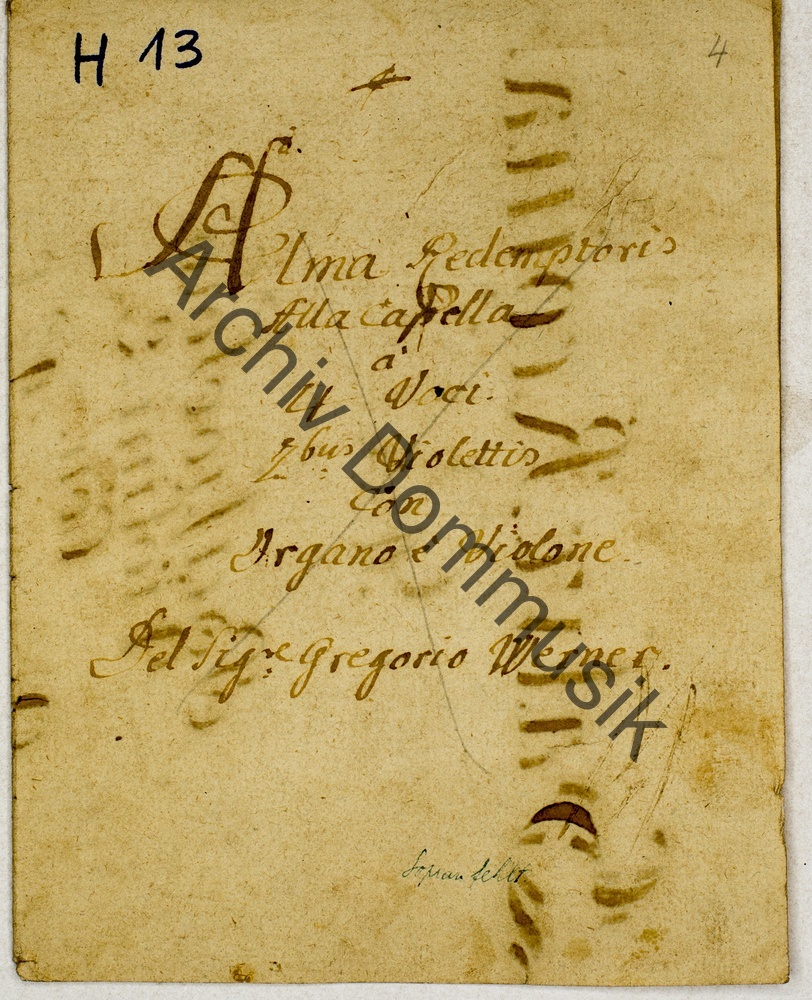 H 13
4
Alma Redemptoris
Alla Capella
a
4 Voci.
2bus Violettis
Con
Organo è Violone.
Del Sigre Gregorio Werner.
Sopran fehlt
Archiv Dommusik